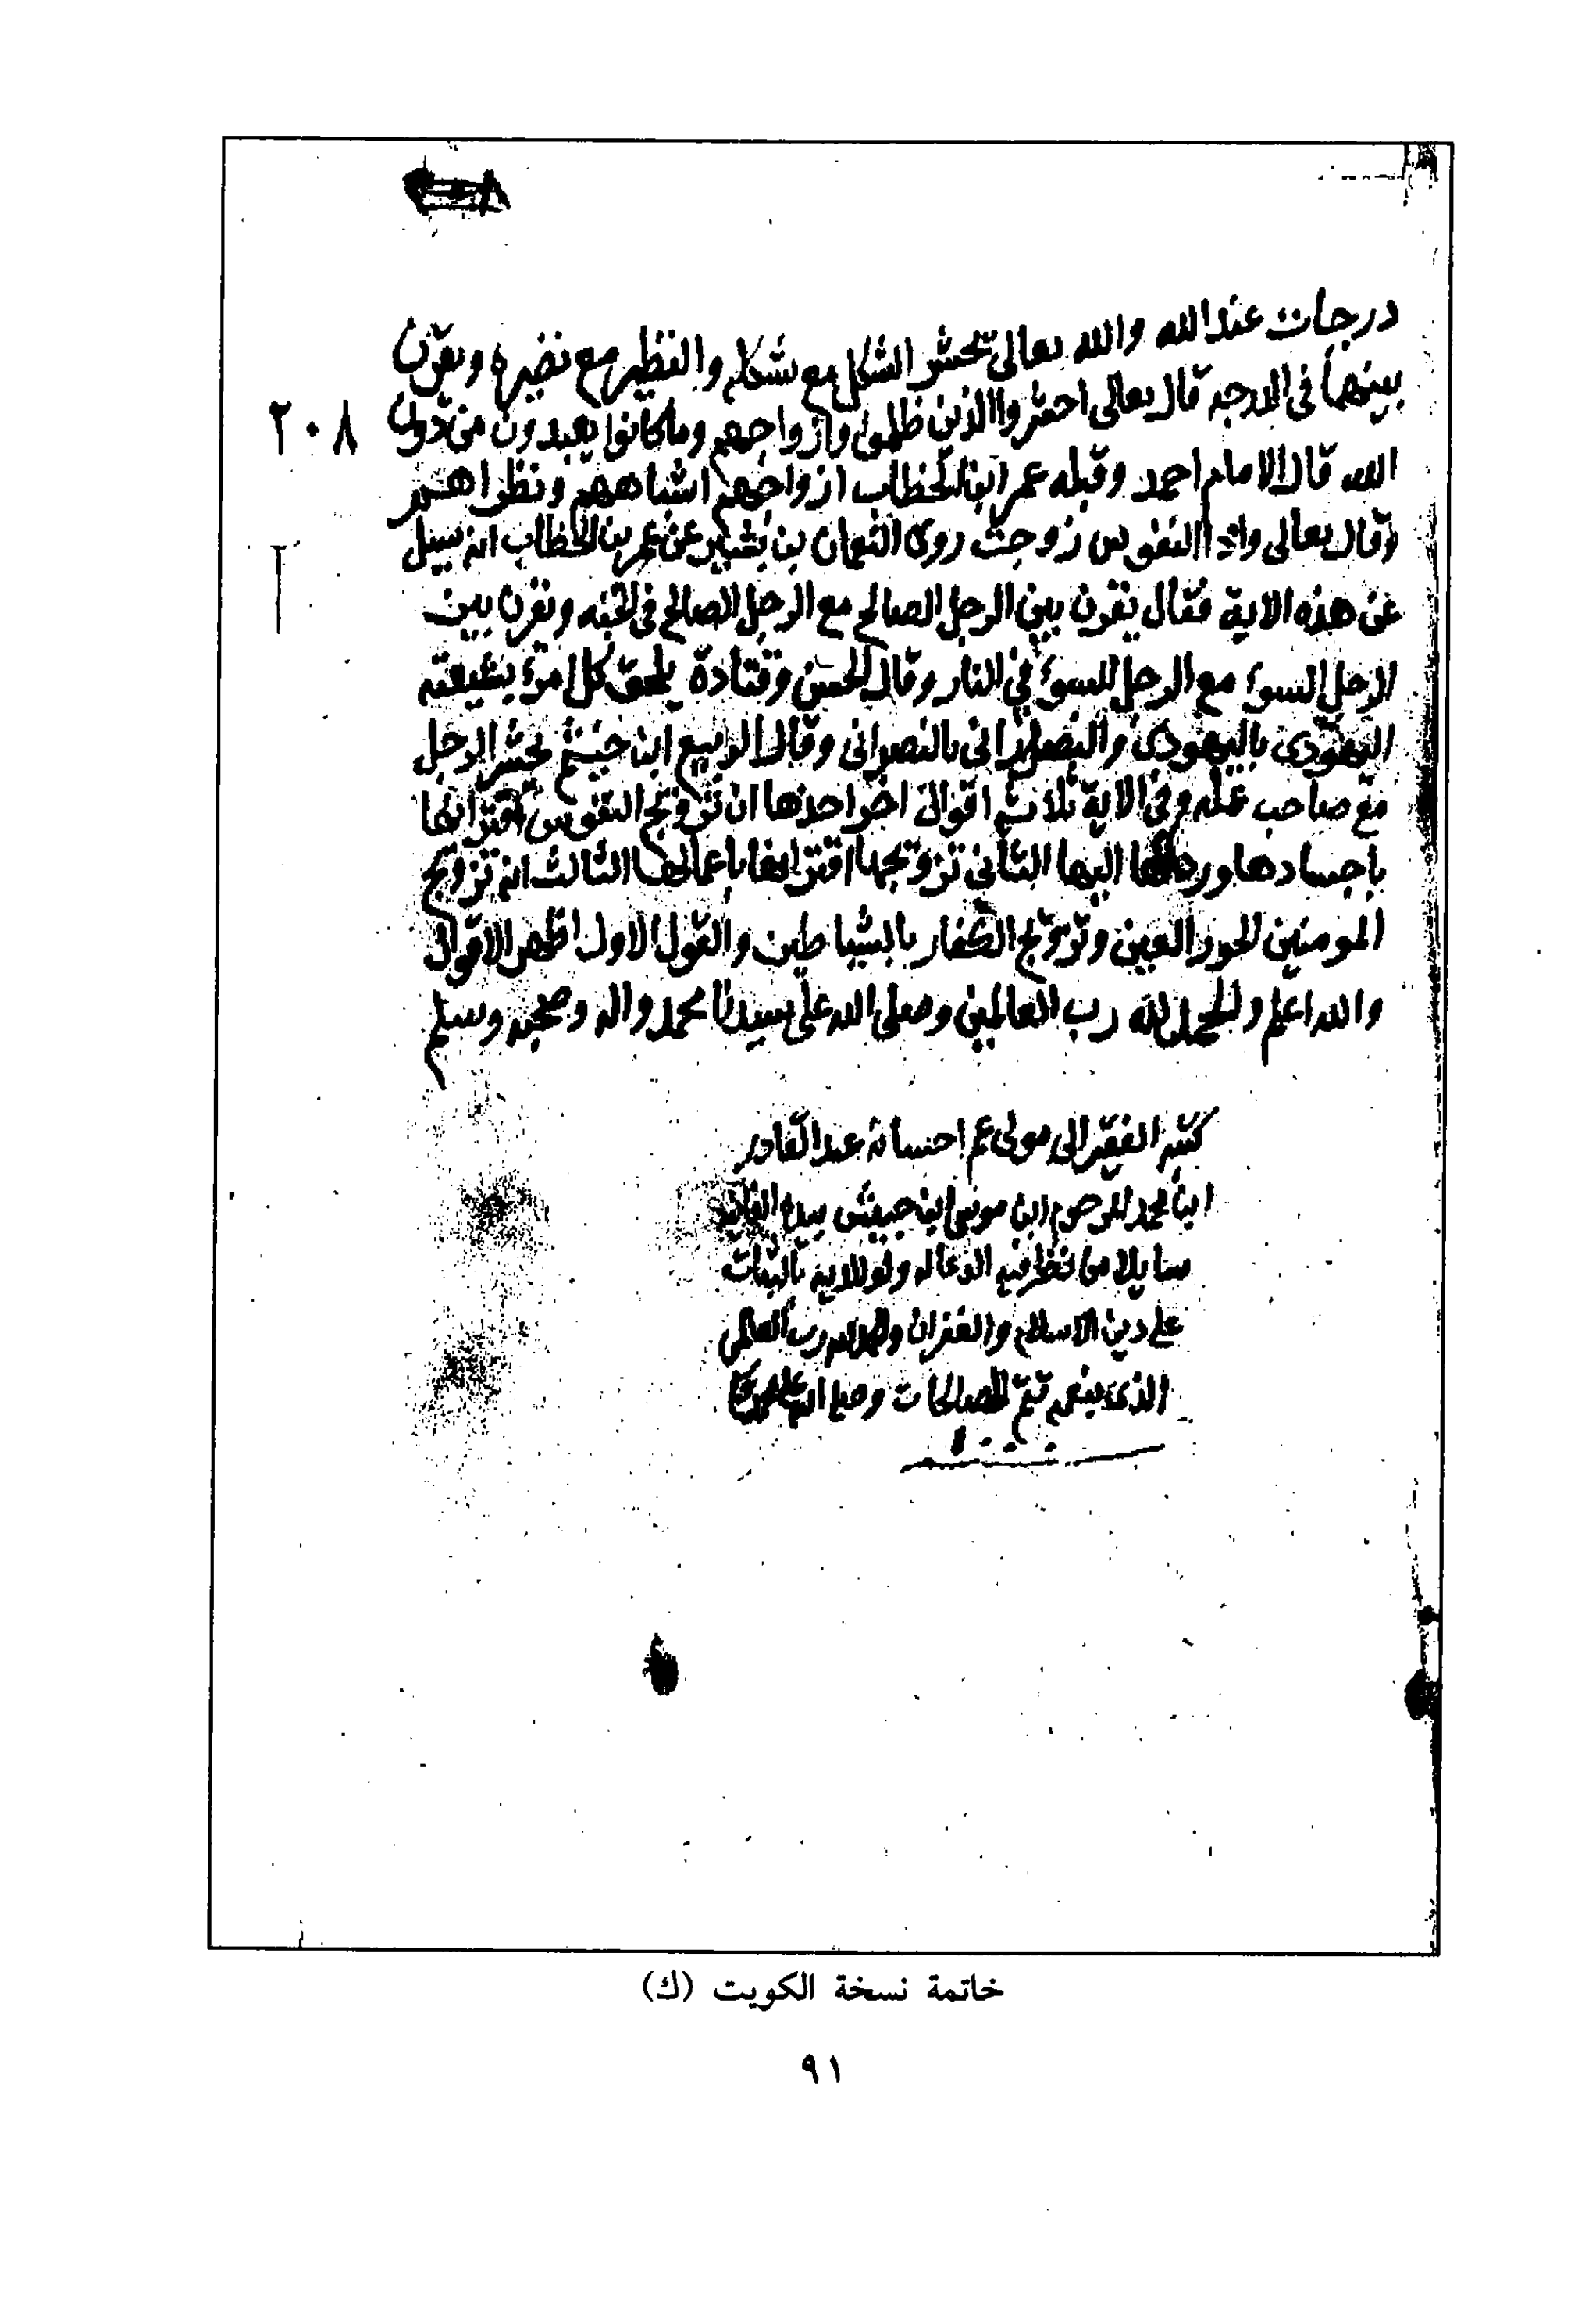 درجات عند الله والله تعالى يحشر الشكل مع شكله والنظير مع نضيره ويقرن
بينهما في الدرجه قال تعالى احشروا الذين ظلموا وازواجهم وما كانوا يعبدون من دون
٢٠٨
الله قال الامام احمد وقبله عمر ابن الخطاب ازواجهم اشباههم ونظراهم
وقال تعالى واذا النفوس زوجت روى النعمان بن بشير عن عمر بن الخطاب انه سيل
عن هذه الاية فقال يقرن بين الرجل الصالح مع الرجل الصالح في الجنه ويقرن بين
الرجل السوء مع الرجل السوء في النار وقال الحسن وقتادة يلحق كل امرء بشيعته
اليهودي باليهودي والنصراني بالنصراني وقال الربيع ابن خيثم يحشر الرجل
مع صاحب عمله وفي الاية ثلاثة اقوال اخر احدها ان تزويج النفوس اقترانها
باجسادها وردها اليها الثاني تزويجها اقترانها باعمالها الثالث انه تزويج
المومنين الحور العين وتزويج الكفار بالشياطين والقول الاول اظهر الاقوال
والله اعلم والحمد لله رب العالمين وصلى الله على سيدنا محمد واله وصحبه وسلم
كتبه الفقير الى مولى عم احسانه عبد القادر
ابن محمد المرحوم ابن موسى ابن حبيش بيده الفانيه
سايلا من نظر فيه الدعا له ولوالديه بالثبات
على دين الاسلام والغفران والحمد لله رب العالمين
الذي بنعمه تتم الصالحات وصلى الله على محمد
خاتمة نسخة الكويت (ك)
٩١